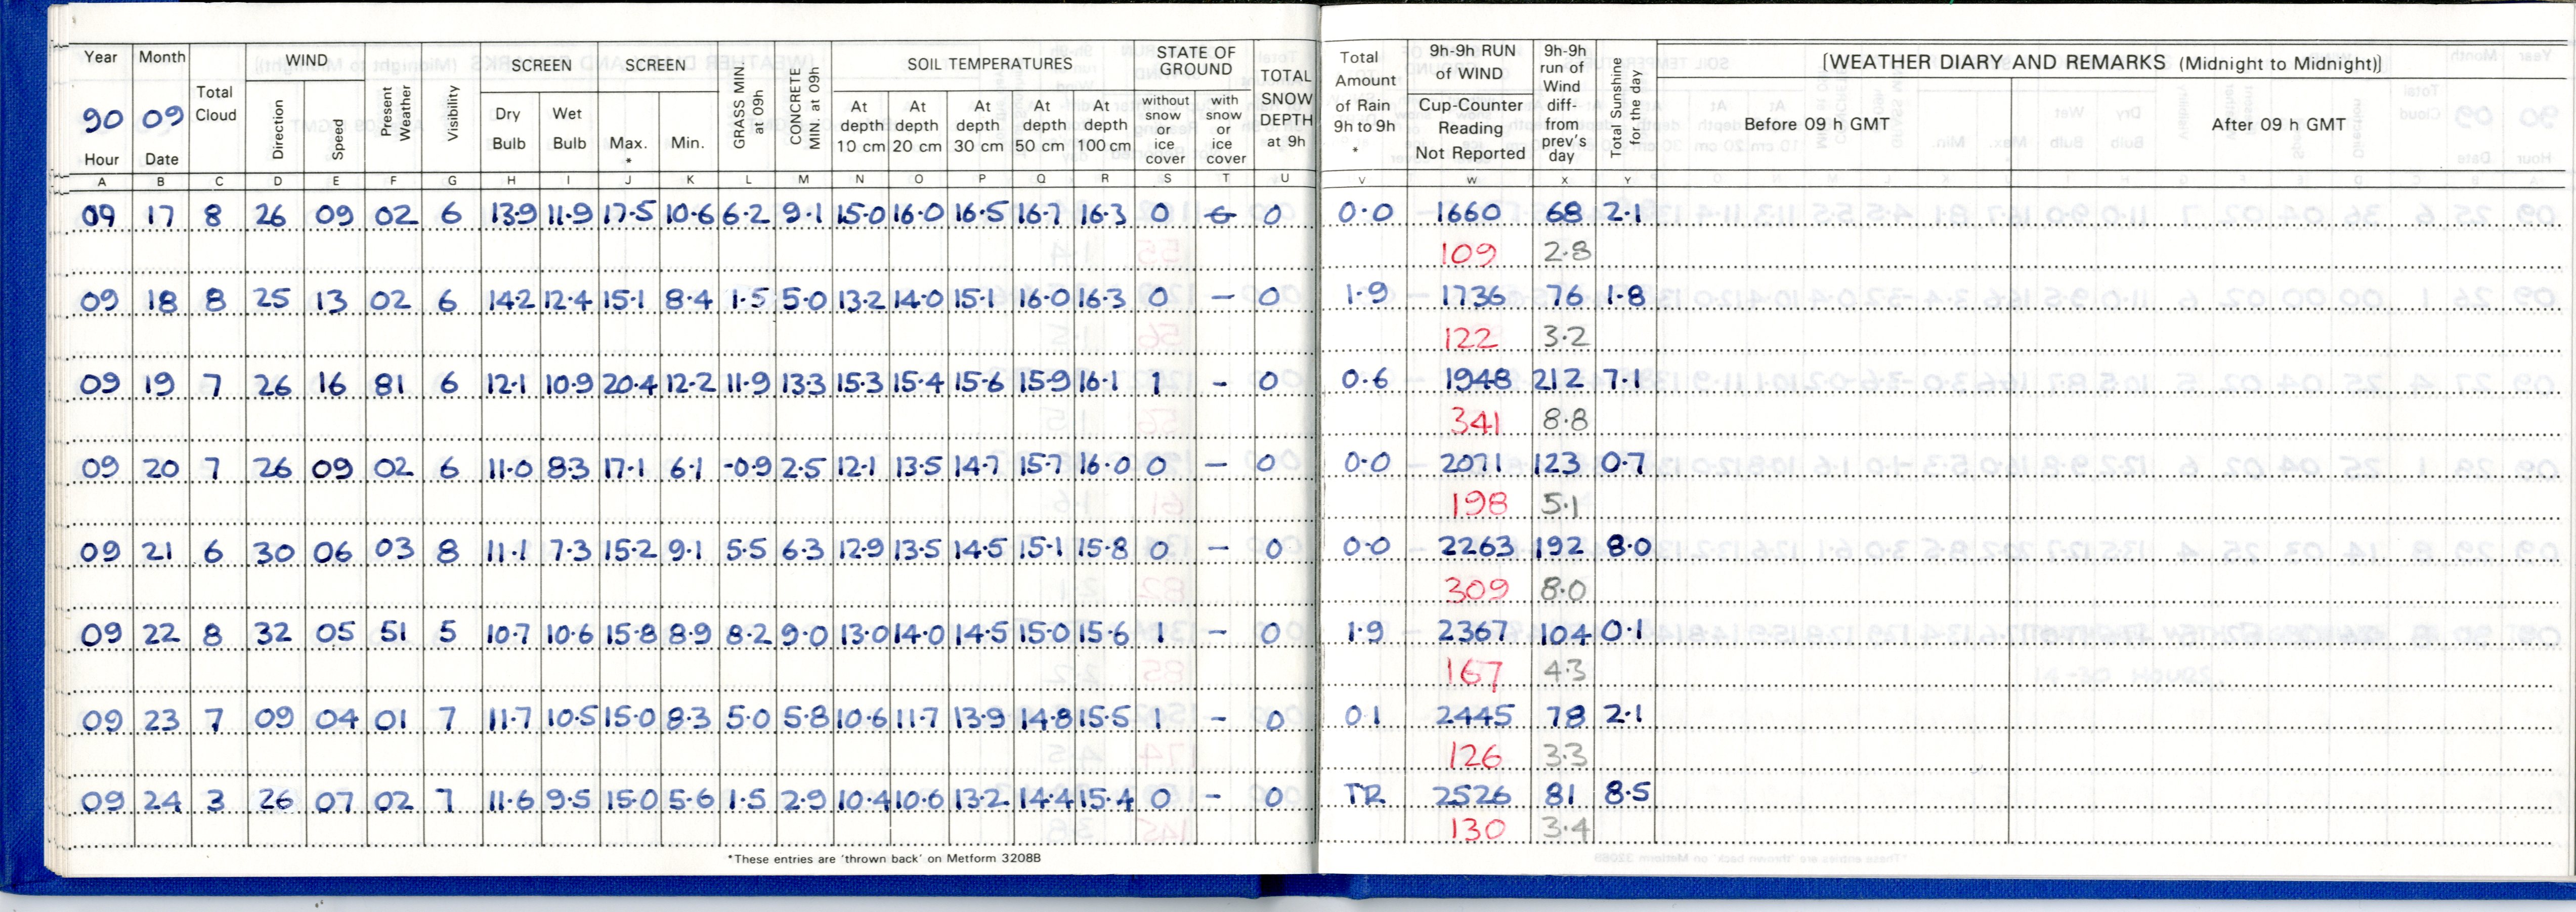 Year Month Total Cloud WIND SCREEN SCREEN GRASS MIN. at 09h CONCRETE MIN at 09h SOIL TEMPERATURES STATE OF GROUND TOTAL SNOW DEPTH at 9h Total Amount of Rain 9h to 9h * 9h-9h RUN of WIND 9h-9h run of Wind diff- from prev's day Total Sunshine for the day [WEATHER DIARY AND REMARKS (Midnight to Midnight)]
90 09 Direction Speed Present Weather Visibility Dry Bulb Wet Bulb Max. * Min. At depth 10 cm At depth 20 cm At depth 30 cm At depth 50 cm At depth 100 cm without snow or ice cover with snow or ice cover Cup-Counter Reading Not Reported Before 09 h GMT After 09 h GMT
Hour Date
A B C D E F G H I J K L M N O P Q R S T U V W X Y
09 17 8 26 09 02 6 13.9 11.9 17.5 10.6 6.2 9.1 15.0 16.0 16.5 16.7 16.3 0 0 0.0 1660 68 2.1
109 2.8
09 18 8 25 13 02 6 14.2 12.4 15.1 8.4 1.5 5.0 13.2 14.0 15.1 16.0 16.3 0 – 0 1.9 1736 76 1.8
122 3.2
09 19 7 26 16 81 6 12.1 10.9 20.4 12.2 11.9 13.3 15.3 15.4 15.6 15.9 16.1 1 – 0 0.6 1948 212 7.1
341 8.8
09 20 7 26 09 02 6 11.0 8.3 17.1 6.1 -0.9 2.5 12.1 13.5 14.7 15.7 16.0 0 – 0 0.0 2071 123 0.7
198 5.1
09 21 6 30 06 03 8 11.1 7.3 15.2 9.1 5.5 6.3 12.9 13.5 14.5 15.1 15.8 0 – 0 0.0 2263 192 8.0
309 8.0
09 22 8 32 05 51 5 10.7 10.6 15.8 8.9 8.2 9.0 13.0 14.0 14.5 15.0 15.6 1 – 0 1.9 2367 104 0.1
167 4.3
09 23 7 09 04 01 7 11.7 10.5 15.0 8.3 5.0 5.8 10.6 11.7 13.9 14.8 15.5 1 – 0 0.1 2445 78 2.1
126 3.3
09 24 3 26 07 02 7 11.6 9.5 15.0 5.6 1.5 2.9 10.4 10.6 13.2 14.4 15.4 0 – 0 TR 2526 81 8.5
130 3.4
*These entries are 'thrown back' on Metform 3208B